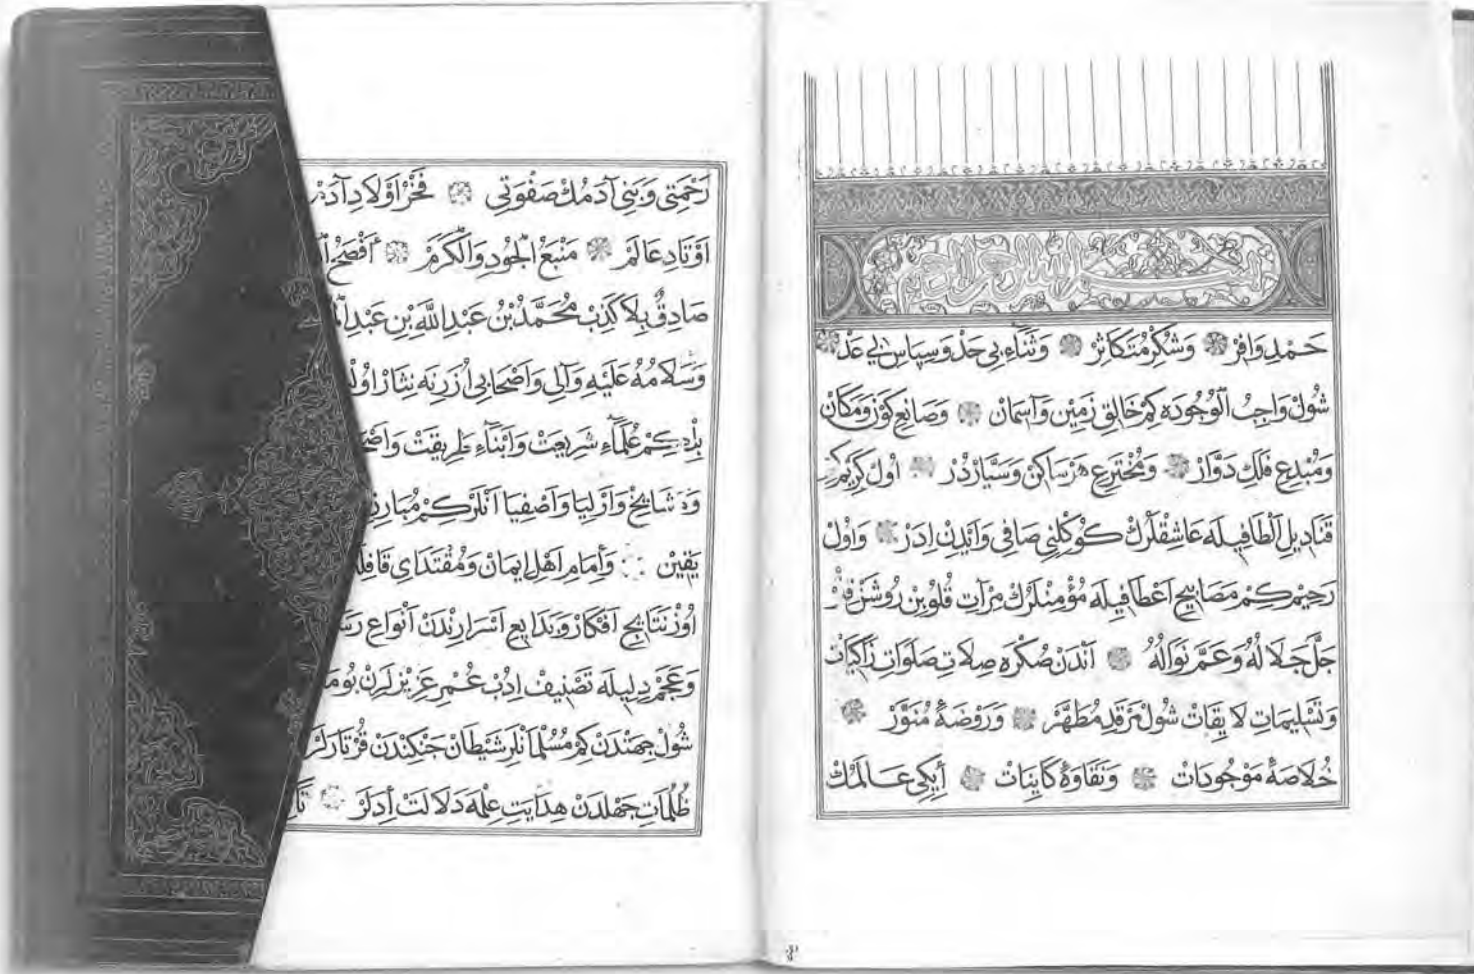 بسم الله الرحمن الرحيم
حَمْدِ وَافِرْ وَشُكْرِ مُتَكَاثِرْ وَثَنَاءِ بِي حَدْ وَسِپَاسِ بِي عَدْ
شُولْ وَاجِبُ الْوُجُودَه كِمْ خَالِقِ زَمِيْن وَآسِمَانْ وَصَانِعِ كَوْن وَمَكَانْ
وَمُبْدِعِ فَلَكِ دَوَّارْ وَمُخْتَرِعِ هَرْ سَاكِنْ وَسَيَّارْدُرْ اولْ كَرِيمْ كِمْ
قَنَادِيلِ اَلْطَافِيلَه عَاشِقْلَرُكْ كُوكُلِنِي صَافِي وَآيْدِنْ اِدَرْ وَاوُلْ
رَحِيمْ كِمْ مَصَابِيحِ اَعْطَافِيلَه مُؤْمِنْلَرُكْ مِرْآتِ قُلُوبِنْ رُوشَنْ
جَلَّ جَلَالُهُ وَعَمَّ نَوَالُهُ اَنْدَنْ صُكْرَه صِلَاتِ صَلَوَاتِ زَاكِيَاتْ
وَتَسْلِيمَاتِ لَايِقَاتْ شُولْ مَرْقَدِ مُطَهَّرْ وَرَوْضَهٔ مُنَوَّرْ
خُلَاصَهٔ مَوْجُودَاتْ وَنَقَاوَهٔ كَايِنَاتْ اِيكِي عَالَمُكْ
رَحْمَتِي وَبَنِي آدَمُكْ صَفْوَتِي فَخْرِ اَوْلَادِ آدَمْ
اَوْتَادِ عَالَمْ مَنْبَعُ الْجُودِ وَالْكَرَمْ اَفْصَحُ
صَادِقٌ بِلَا كَذِبْ مُحَمَّدُ بْنُ عَبْدِ اللهِ بْنِ عَبْدِ
وَسَلَامُهُ عَلَيْهِ وَآلِي وَاَصْحَابِي اُزَرِنَه نِثَارْ اوُلْ
كِمْ عُلَمَاءِ شَرِيعَتْ وَاَبْنَاءِ طَرِيقَتْ
وَمَشَايِخْ وَاَوْلِيَا وَاَصْفِيَا اَنْلَرْ كِمْ
يَقِينْ وَاِمَامِ اَهْلِ اِيمَانْ وَمُقْتَدَايِ
اوُزْ نَتَايِجِ اَفْكَارْ وَبَدَايِعِ اَسْرَارِنْدَنْ اَنْوَاعِ
وَعَجَمْ دِلِيلَه تَصْنِيفْ اِدُبْ عُمْرِ عَزِيزْلَرِنْ
شُولْ جِهَتْدَنْ كِمْ مُسُلْمَانْلَرِ شَيْطَانْ جَنْكِنْدَنْ
ظُلُمَاتِ جَهْلدَنْ هِدَايَتِ عِلْمَه دَلَالَتْ اِدَلَرْ